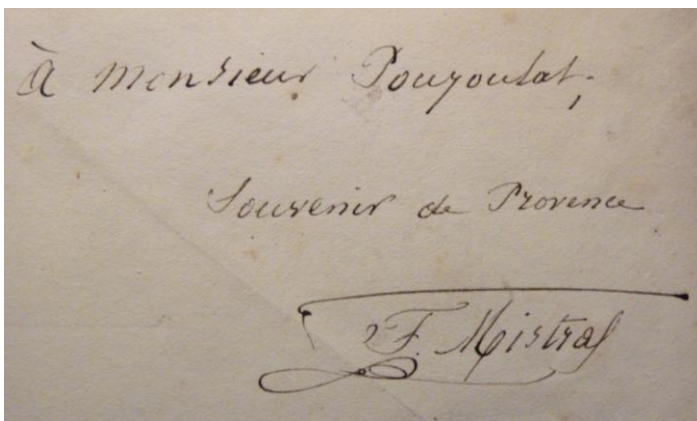 à Monsieur Poujoulat,
Souvenir de Provence
F. Mistral